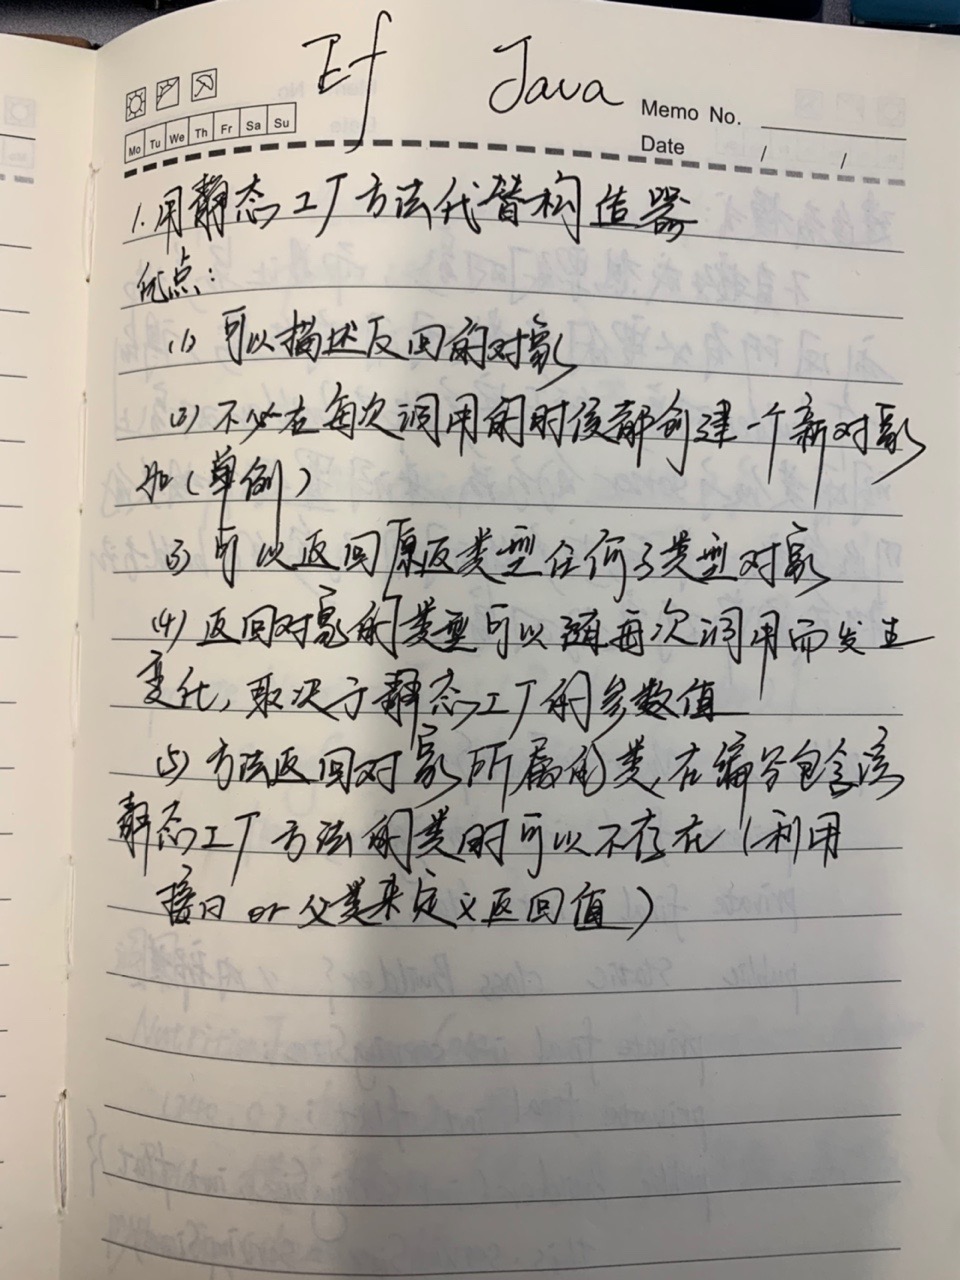 Ef Java
Memo No.
Mo Tu We Th Fr Sa Su
Date / /
1.用静态工厂方法代替构造器
优点:
(1) 可以描述返回的对象
(2) 不必在每次调用的时候都创建一个新对象
如(单例)
(3) 可以返回原返类型任何子类型对象
(4) 返回对象的类型可以随每次调用而发生
变化,取决于静态工厂的参数值
(5) 方法返回对象所属的类,在编写包含该
静态工厂方法的类时可以不存在(利用
接口 or 父类来定义返回值)